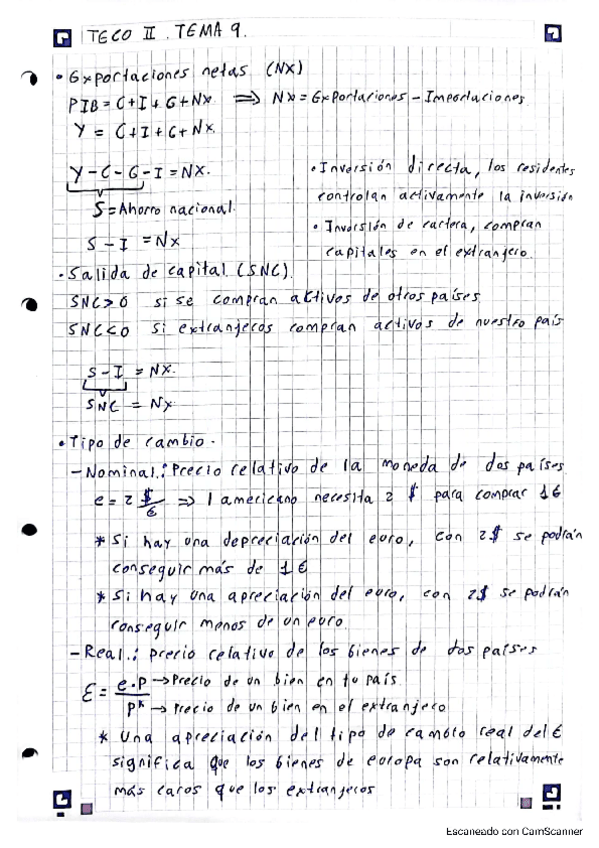 TECO II. TEMA 9.
• Exportaciones netas (NX)
PIB = C+I+G+Nx. ⟹ Nx = Exportaciones - Importaciones
Y = C+I+G+Nx.
Y-C-G-I = NX.
S = Ahorro nacional.
S-I = Nx
• Inversión directa, los residentes
controlan activamente la inversión
• Inversión de cartera, compran
capitales en el extranjero.
• Salida de capital (SNC).
SNC>0 si se compran activos de otros países
SNC<0 si extranjeros compran activos de nuestro país
S-I = NX.
SNC = Nx
• Tipo de cambio.
- Nominal.: Precio relativo de la moneda de dos países
e = 2 $/€ ⟹ 1 americano necesita 2 $ para comprar 1€
* Si hay una depreciación del euro, con 2$ se podrán
conseguir más de 1€
* Si hay una apreciación del euro, con 2$ se podrán
conseguir menos de un euro.
- Real.: precio relativo de los bienes de dos países
ε = e.P → Precio de un bien en tu país.
P* → Precio de un bien en el extranjero
* Una apreciación del tipo de cambio real del €
significa que los bienes de europa son relativamente
más caros que los extranjeros
Escaneado con CamScanner